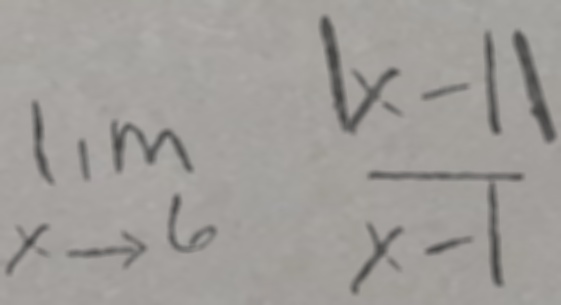 lim x→6 |x-1| / x-1